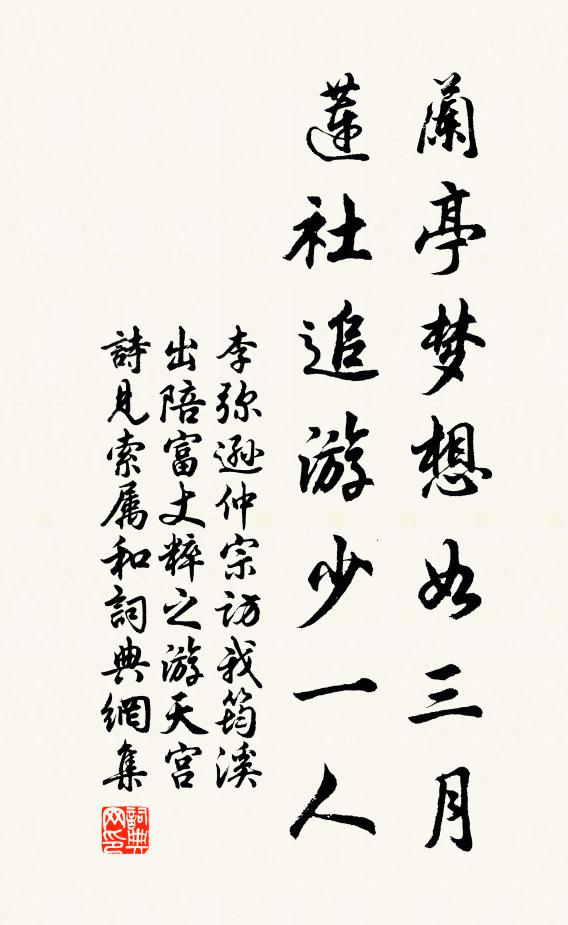 蘭亭梦想如三月
蓮社追游少一人
李弥遜仲宗访我筠溪
出陪富丈粹之游天宫
詩見索属和詞典網集
詞典网印